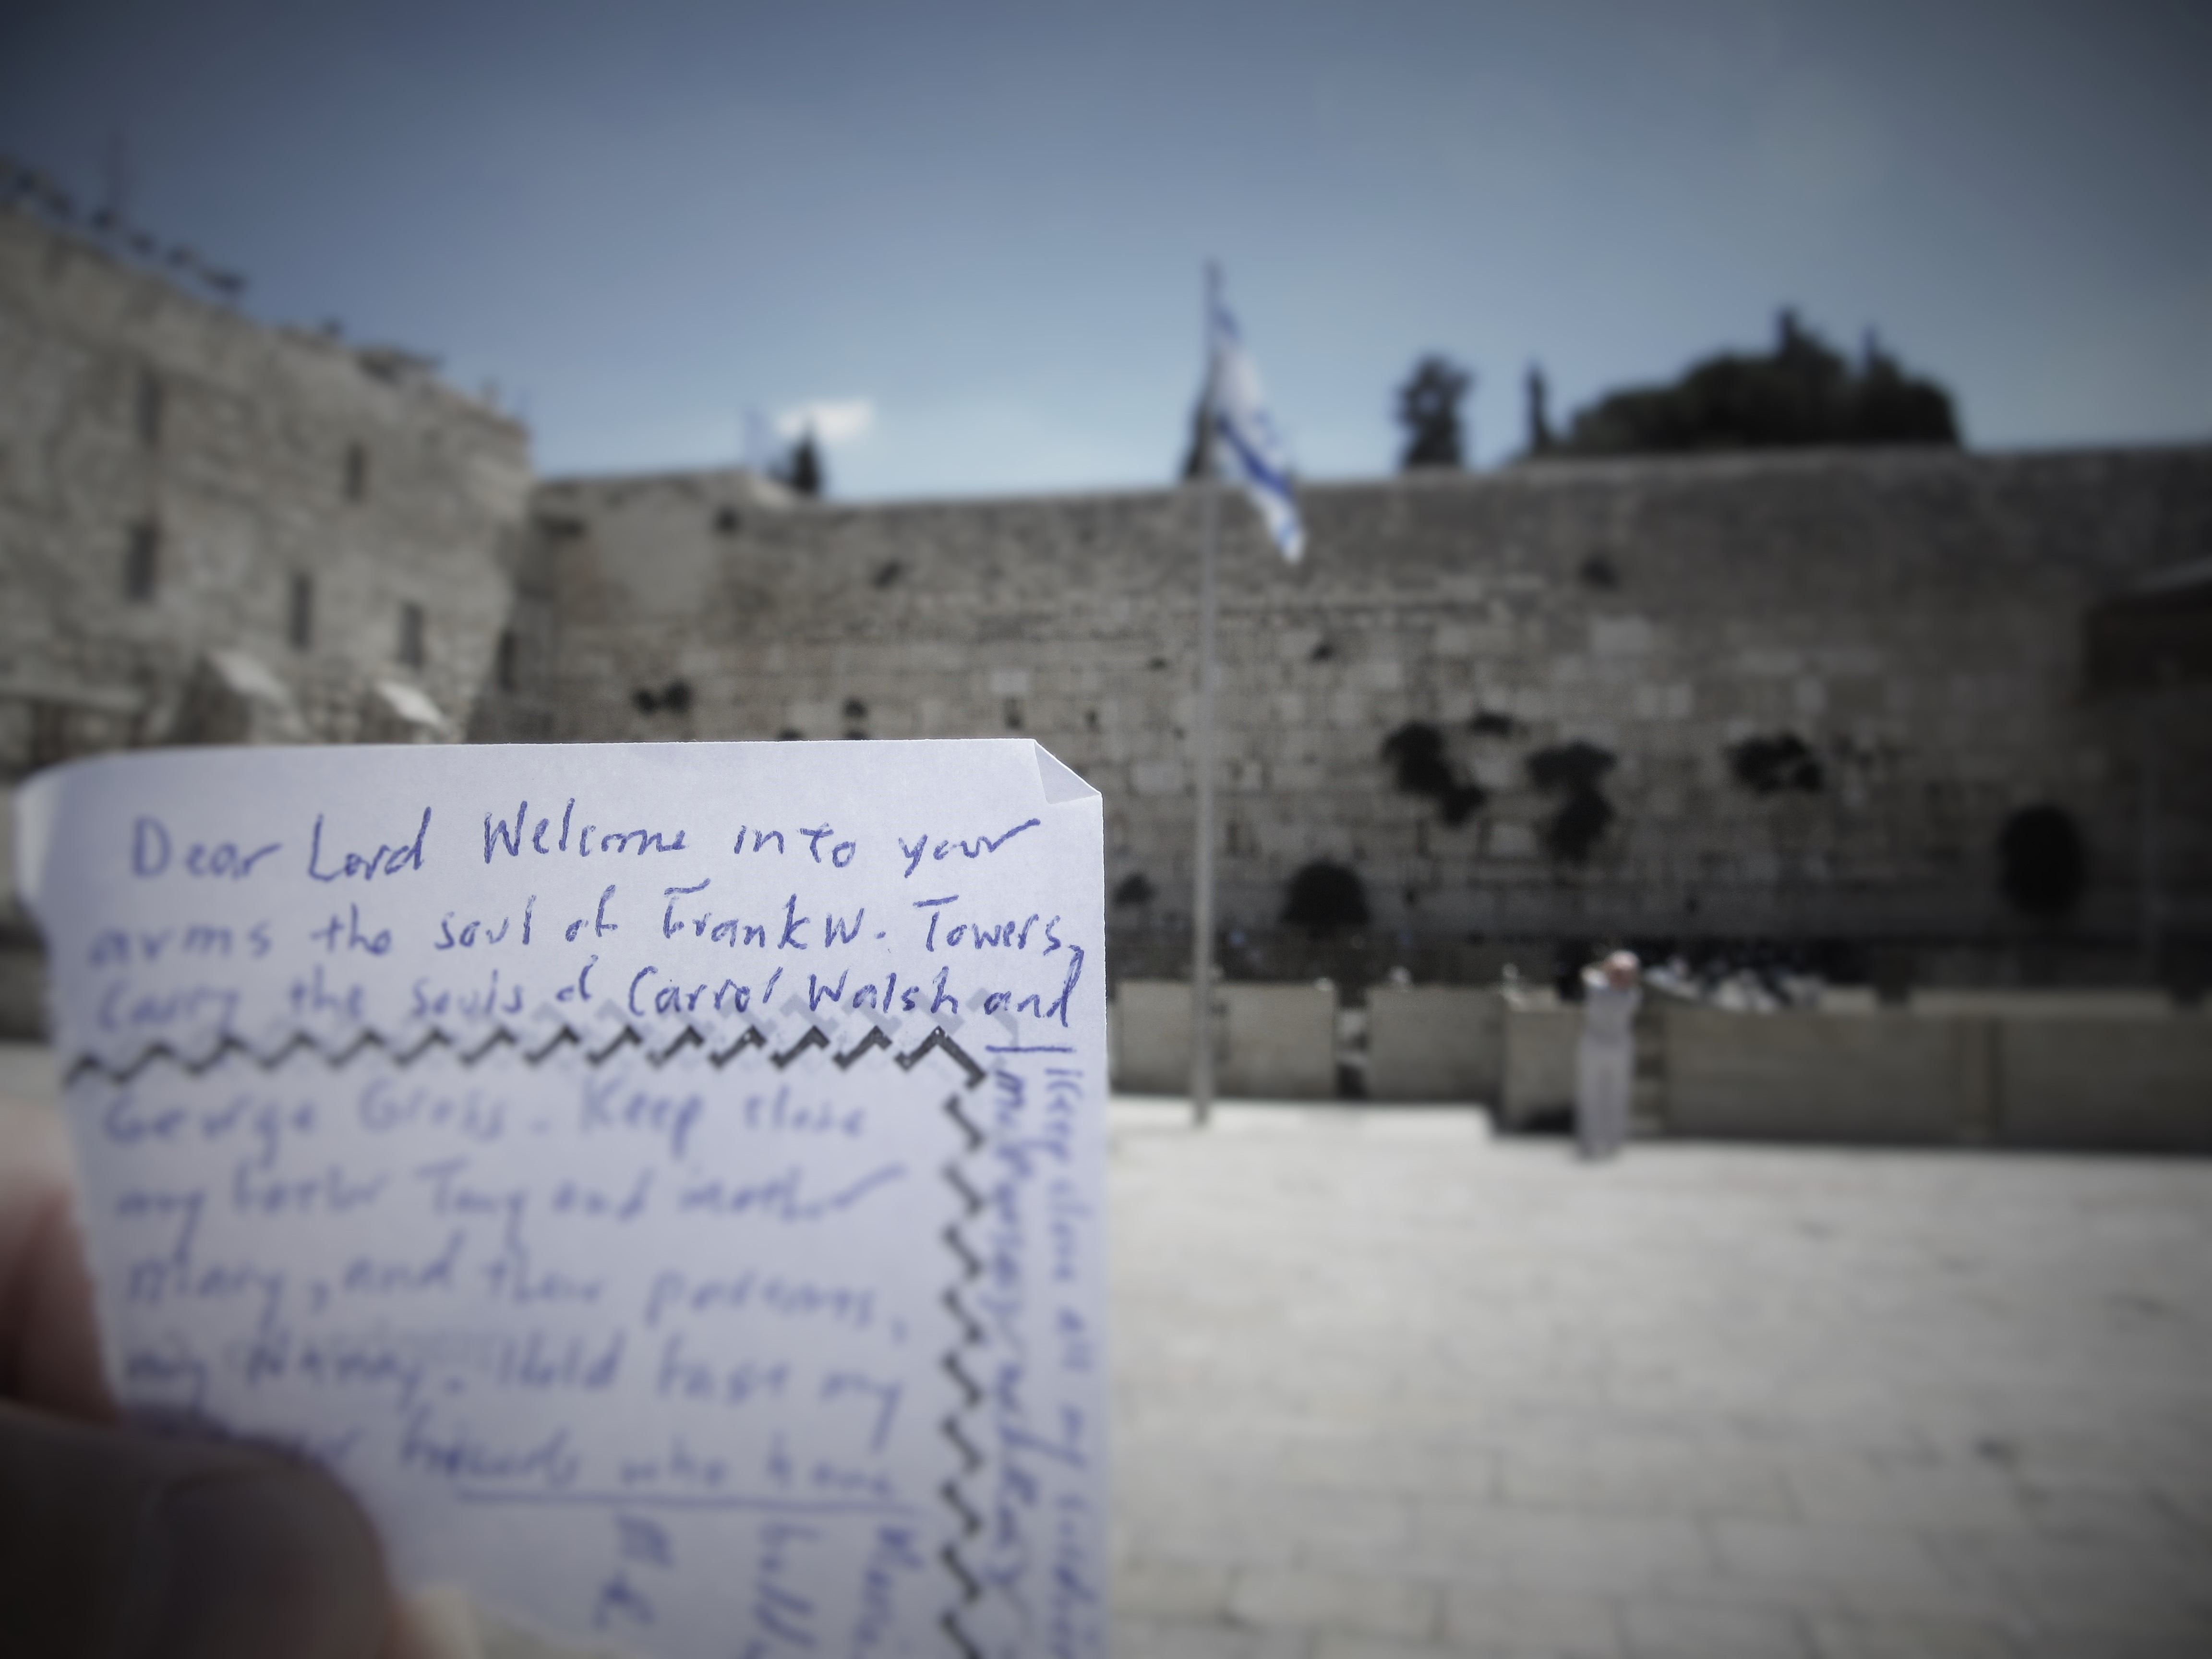 Dear Lord Welcome into your
arms the soul of Frank W. Towers,
Carry the souls of Carrol Walsh and
George Gross. Keep close
my father Tony and mother
Mary, and their parents,
my Nanny. Hold fast my
friends who have
Keep close all my